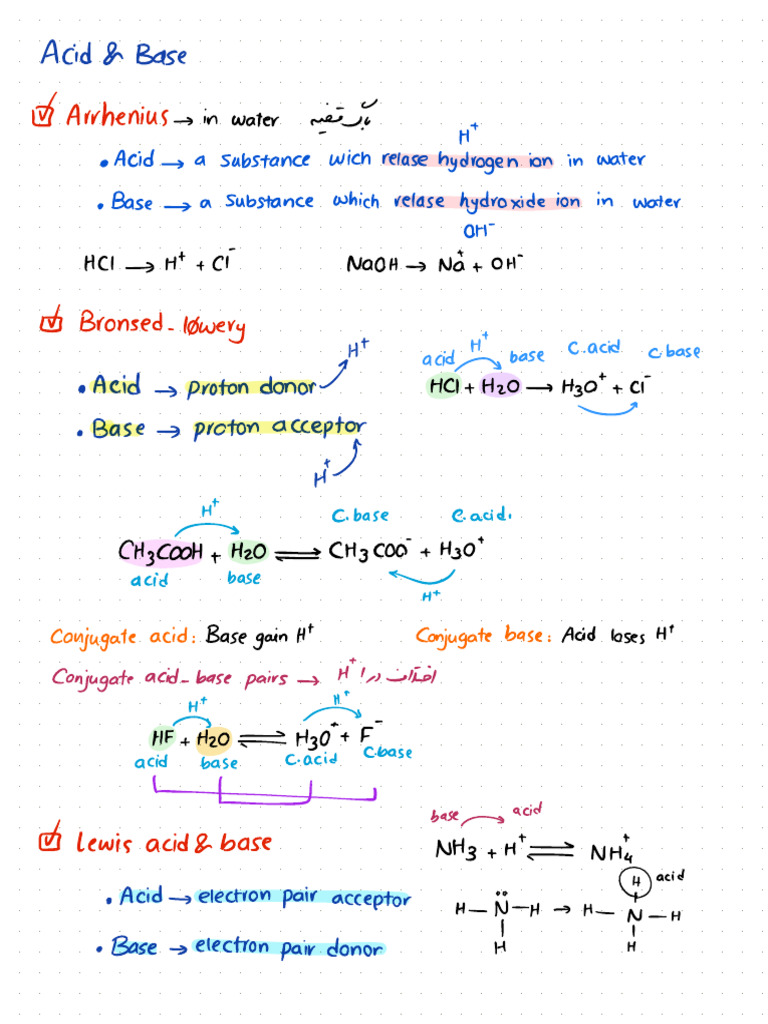 Acid & Base
Arrhenius → in water
H⁺
• Acid → a substance wich relase hydrogen ion in water
• Base → a substance which relase hydroxide ion in water
OH⁻
HCl → H⁺ + Cl⁻ NaOH → Na⁺ + OH⁻
Bronsed-lowery
H⁺
• Acid → proton donor
• Base → proton acceptor
H⁺
H⁺
acid base C.acid C.base
HCl + H2O → H3O⁺ + Cl⁻
H⁺ C.base C.acid.
CH3COOH + H2O ⇌ CH3COO⁻ + H3O⁺
acid base
H⁺
Conjugate acid: Base gain H⁺ Conjugate base: Acid loses H⁺
Conjugate acid-base pairs → اختلاف در 1 H⁺
H⁺ H⁺
HF + H2O ⇌ H3O⁺ + F⁻
acid base C.acid C.base
Lewis acid & base
• Acid → electron pair acceptor
• Base → electron pair donor
base acid
NH3 + H⁺ ⇌ NH4⁺
H acid
H—N—H → H—N⁺—H
H H